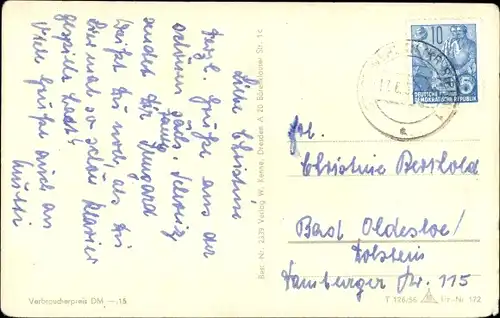 Liebe Christine
herzl. Grüße aus der
schönen sächs. Schweiz
sendet Dir Irmgard
Weißt Du noch als Du
hier mal so schön Klavier
gespielt hast?
Viele Grüße auch an
Mutti
Best.-Nr. 2339 Verlag W. Kenne, Dresden A 20 Bärenklauser Str. 14
10
DEUTSCHE
DEMOKRATISCHE REPUBLIK
Christine Berthold
Bad Oldesloe/
Holstein
Hamburger Str. 115
Verbraucherpreis DM –.15
T 126/56 Nr. 172